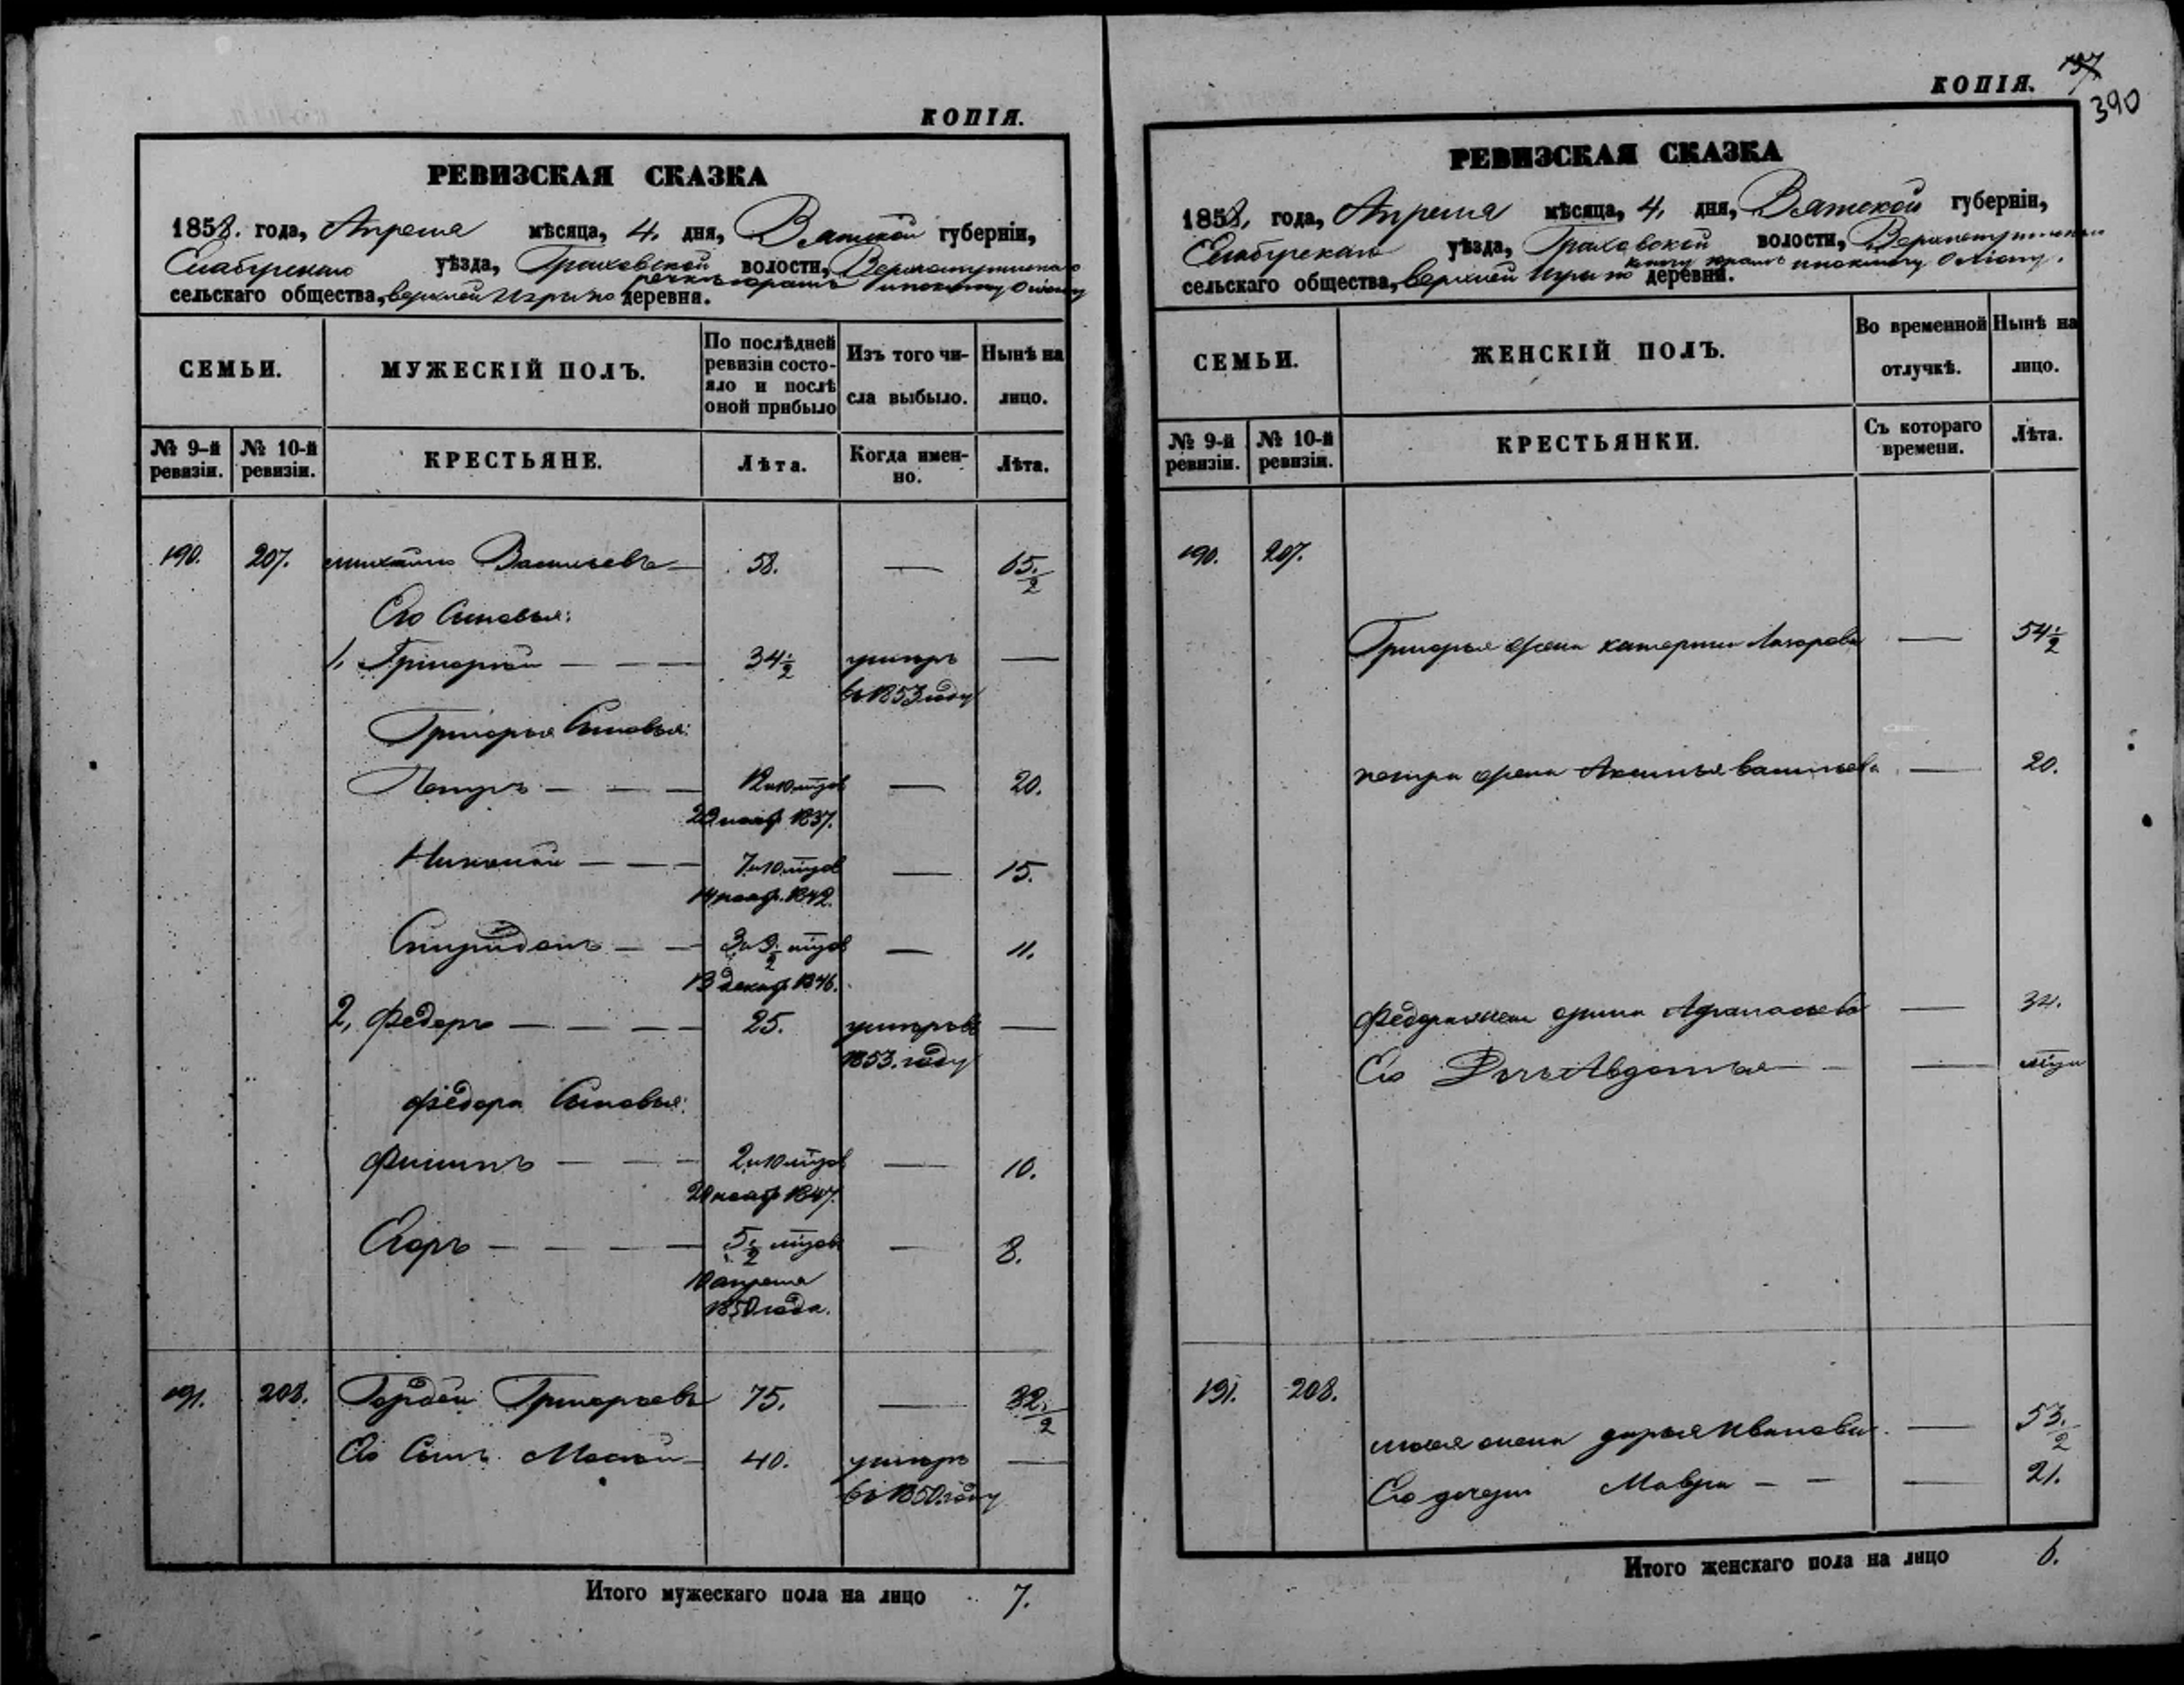 КОПІЯ.
РЕВИЗСКАЯ СКАЗКА
1858. года, Апреля мѣсяца, 4. дня, Вятской губерніи,
Елабугскаго уѣзда, Граховской волости,
сельскаго общества, верхней Игры по деревня.
СЕМЬИ.
МУЖЕСКІЙ ПОЛЪ.
По послѣдней ревизіи состояло и послѣ оной прибыло
Изъ того числа выбыло.
Нынѣ на лицо.
№ 9-й ревизіи.
№ 10-й ревизіи.
КРЕСТЬЯНЕ.
Лѣта.
Когда именно.
Лѣта.
190. 207. михайло Васильевъ — 58. — 65½
Его Сыновья:
1, Григорій — — — 34½ умеръ —
въ 1853 году
Григорья Сыновья:
Петръ — — — 12 и 10 мѣсцов — 20.
1837.
Николай — — — 7 и 10 мѣсцов — 15.
14 нояб. 1842.
Спиридонъ — — 3 и 9½ мѣсцов — 11.
13 декаб 1846.
2, Федоръ — — — 25. умеръ въ —
1853. году
Федора Сыновья:
Филипъ — — — 2 и 10 мѣсцов — 10.
нояб 1847.
Егоръ — — — — 5½ мѣсцов — 8.
10 апреля
1850 года.
191. 208. Гордей Григорьевъ 75. —
Его Сынъ 40. умеръ —
въ 1850 году
Итого мужескаго пола на лицо 7.
КОПІЯ.
390
РЕВИЗСКАЯ СКАЗКА
1858, года, Апреля мѣсяца, 4, дня, Вятской губерніи,
Елабугскаго уѣзда, Граховской волости,
сельскаго общества, верхней Игры по деревни.
СЕМЬИ.
ЖЕНСКІЙ ПОЛЪ.
Во временной отлучкѣ.
Нынѣ на лицо.
№ 9-й ревизіи.
№ 10-й ревизіи.
КРЕСТЬЯНКИ.
Съ котораго времени.
Лѣта.
190. 207.
Григорья жена катерина Лазарева — 54½
петра жена Аксинья васильева — 20.
Федора жена орина Афанасьева — 34.
Его Дочь Авдотья — —
191. 208.
жена дарья Иванова — 53½
Его дочери Мавра — — — 21.
Итого женскаго пола на лицо 6.